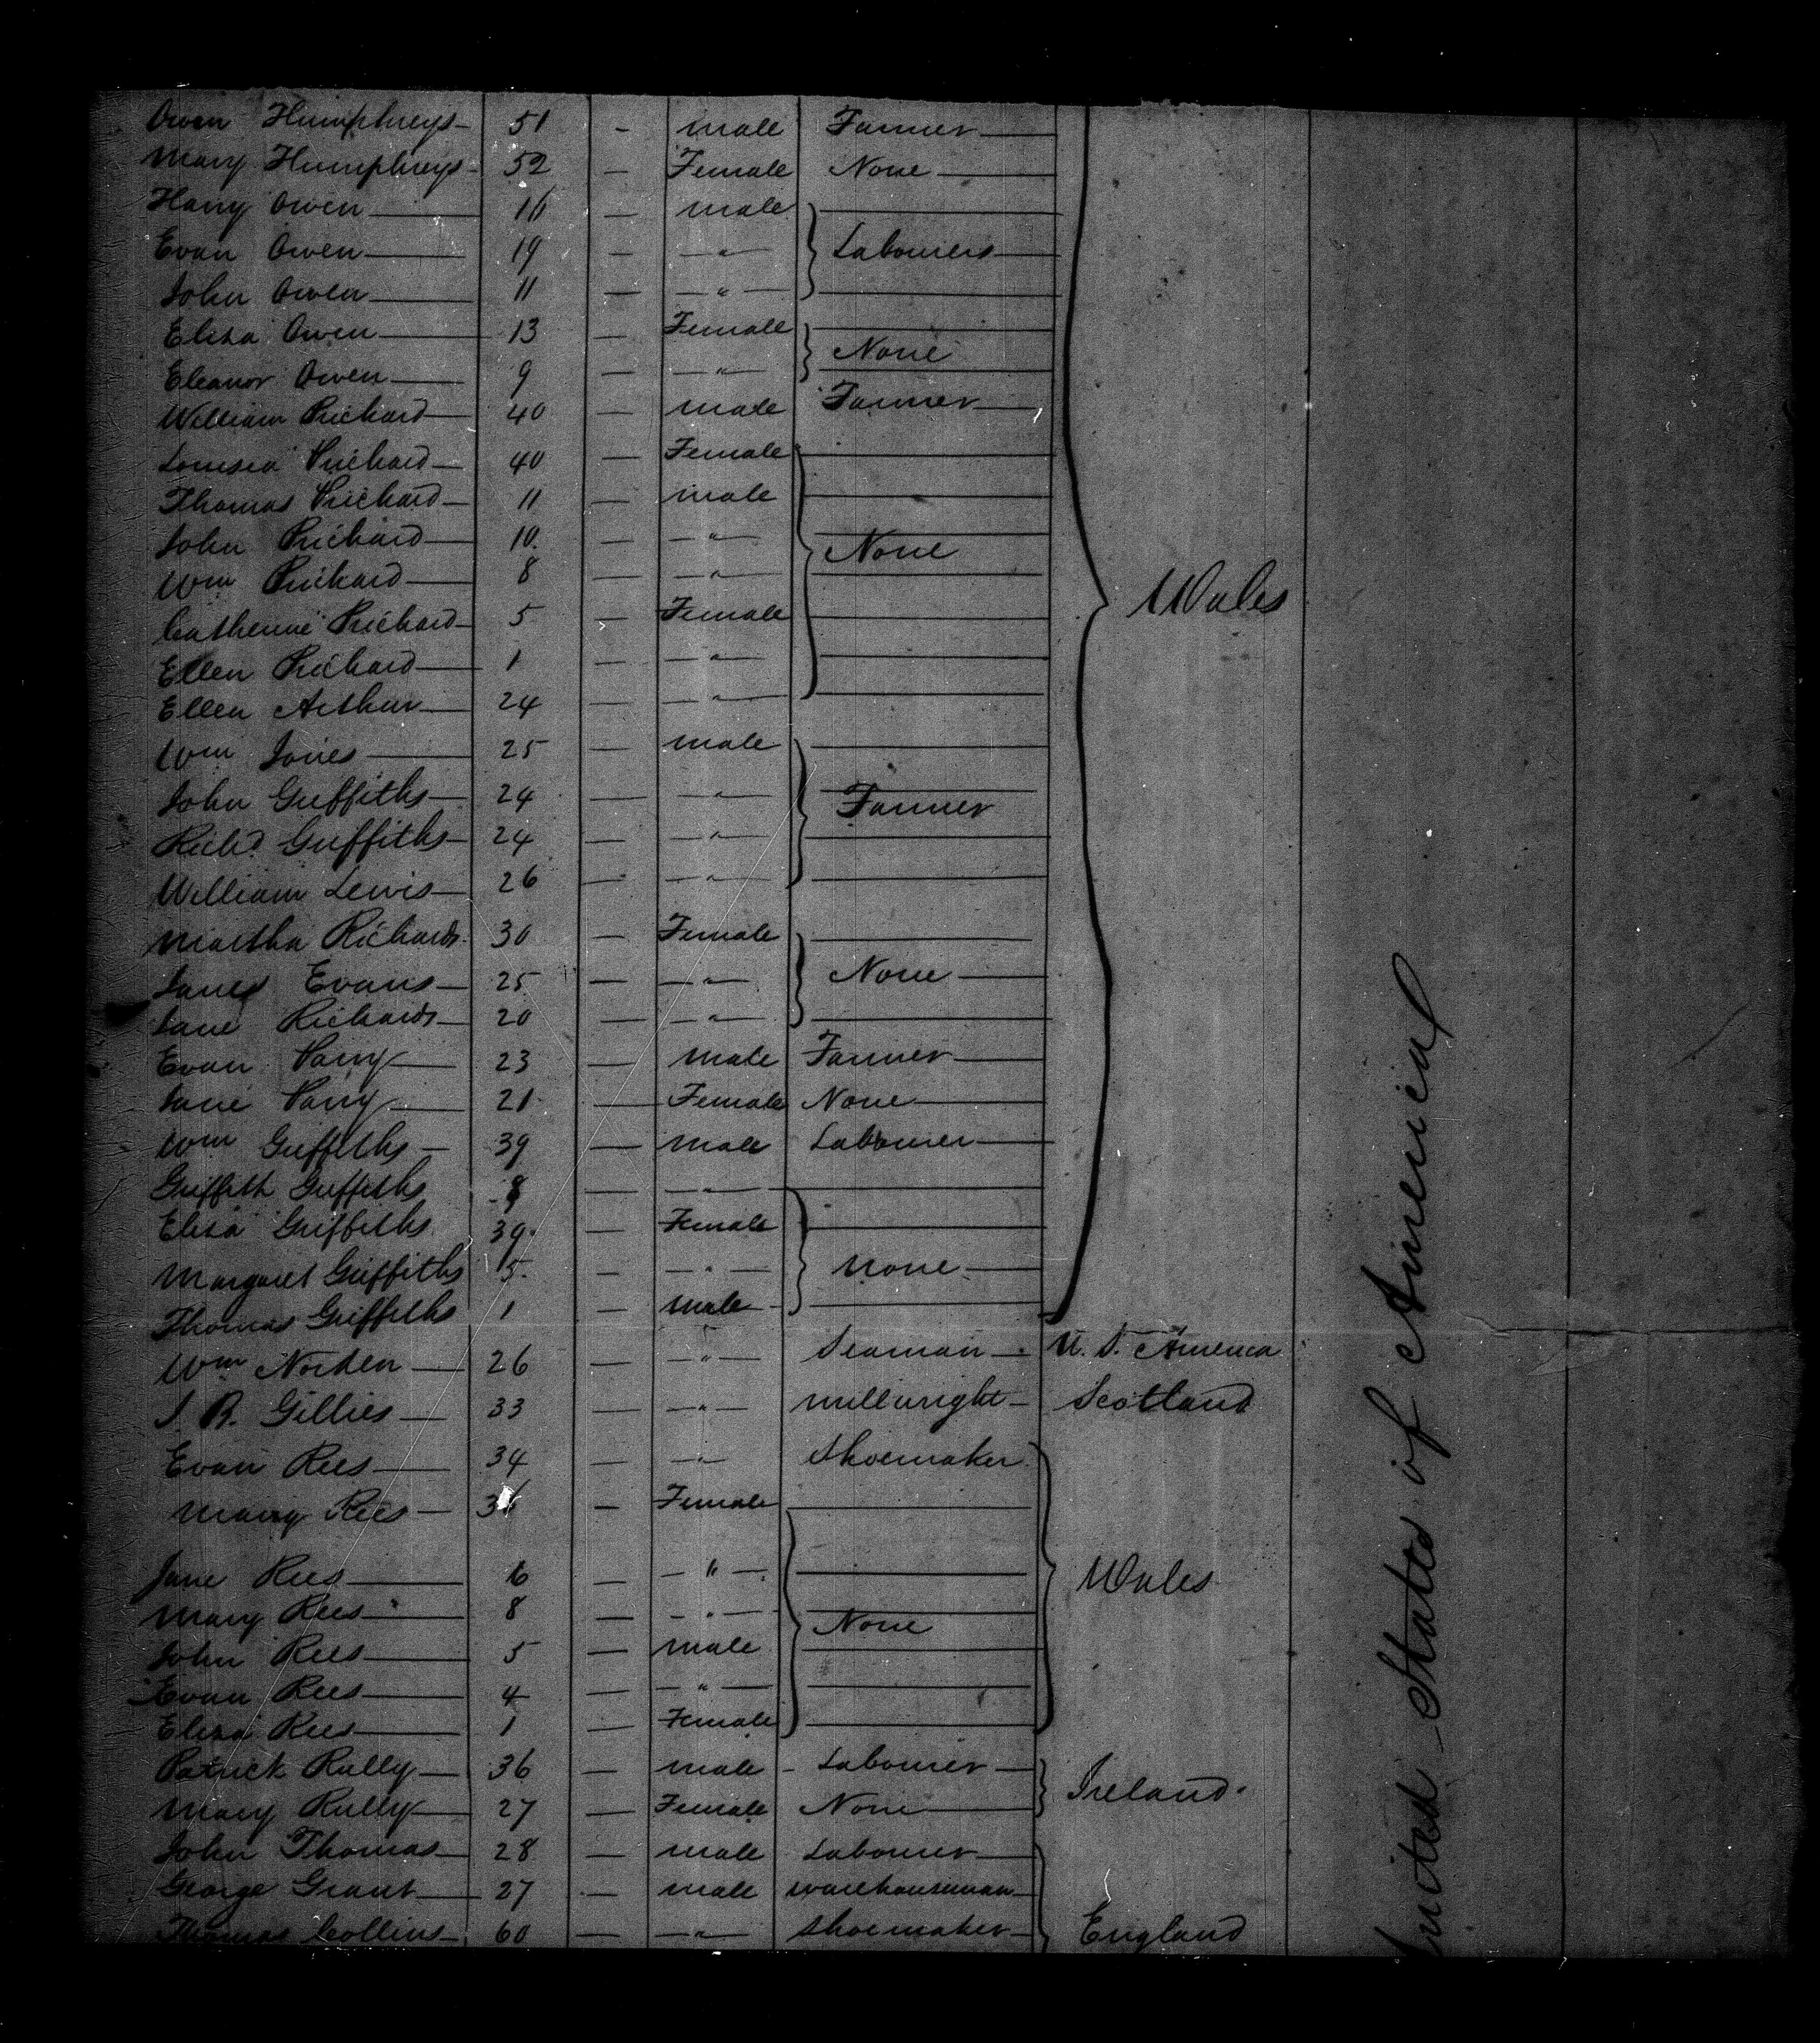 Owen Humphreys 51 - male Farmer
Mary Humphreys 52 - Female None
Harry Owen 16 - male
Evan Owen 19 - " Labourers
John Owen 11 - "
Eliza Owen 13 - Female
None
Eleanor Owen 9 - "
William Prichard 40 - male Farmer
Louisea Prichard 40 - Female
Thomas Prichard 11 - male
John Prichard 10 - " None
Wm Prichard 8 - "
Wales
Catherine Prichard 5 - Female
Ellen Prichard 1 - "
Ellen Arthur 24 - "
Wm Jones 25 - male
John Griffiths 24 - " Farmer
Richd Griffiths 24 - "
William Lewis 26 - "
Martha Richards 30 - Female
Evans 25 - " None
Jane Richards 20 - "
Evan Parry 23 - male Farmer
Jane Parry 21 - Female None
Wm Griffiths 39 - male Labourer
Griffith Griffiths 8 - "
Eliza Griffiths 39 - Female
Margaret Griffiths 5 - " None
Thomas Griffiths 1 - male
Wm Norden 26 - " Seaman U. S. America
J. R. Gillies 33 - " Millwright Scotland
Evan Rees 34 - " Shoemaker
Mary Rees - Female
Jane Rees 6 - " Wales
Mary Rees 8 - " None
John Rees 5 - male
Evan Rees 4 - "
Eliza Rees 1 - Female
Patrick Rully 36 - male - Labourer
Ireland
Mary Rully 27 - Female None
John Thomas 28 - male Labourer
George Grant 27 - male warehouseman
Thomas Collins 60 - " Shoemaker England
United States of America